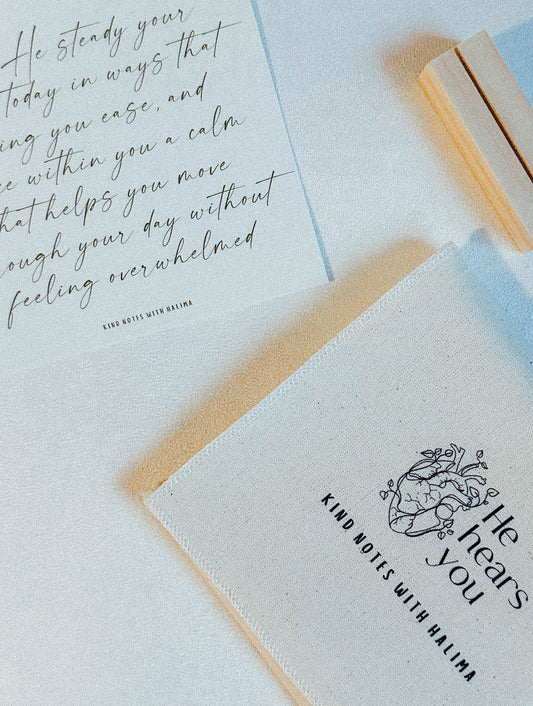 He steady your
today in ways that
ing you ease, and
ce within you a calm
hat helps you move
ough your day without
feeling overwhelmed
KIND NOTES WITH HALIMA
He
hears
you
KIND NOTES WITH HALIMA